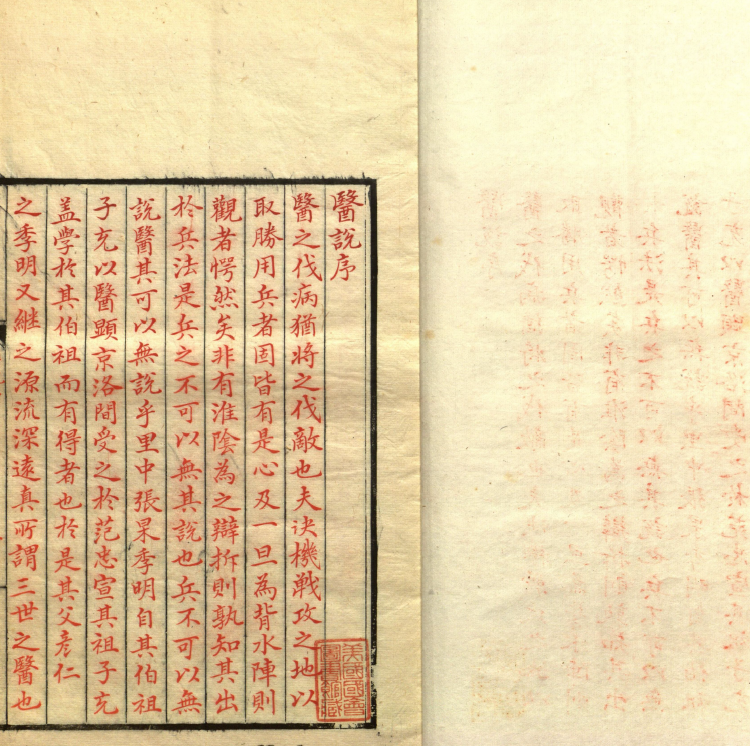 醫說序
醫之伐病猶將之伐敵也夫決機戰攻之地以
取勝用兵者固皆有是心及一旦為背水陣則
觀者愕然矣非有淮陰為之辯拆則孰知其出
於兵法是兵之不可以無其說也兵不可以無
說醫其可以無說乎里中張杲季明自其伯祖
子充以醫顯京洛閒受之於范忠宣其祖子充
蓋學於其伯祖而有得者也於是其父彥仁
之季明又繼之源流深遠真所謂三世之醫也
美國國會
圖書館藏